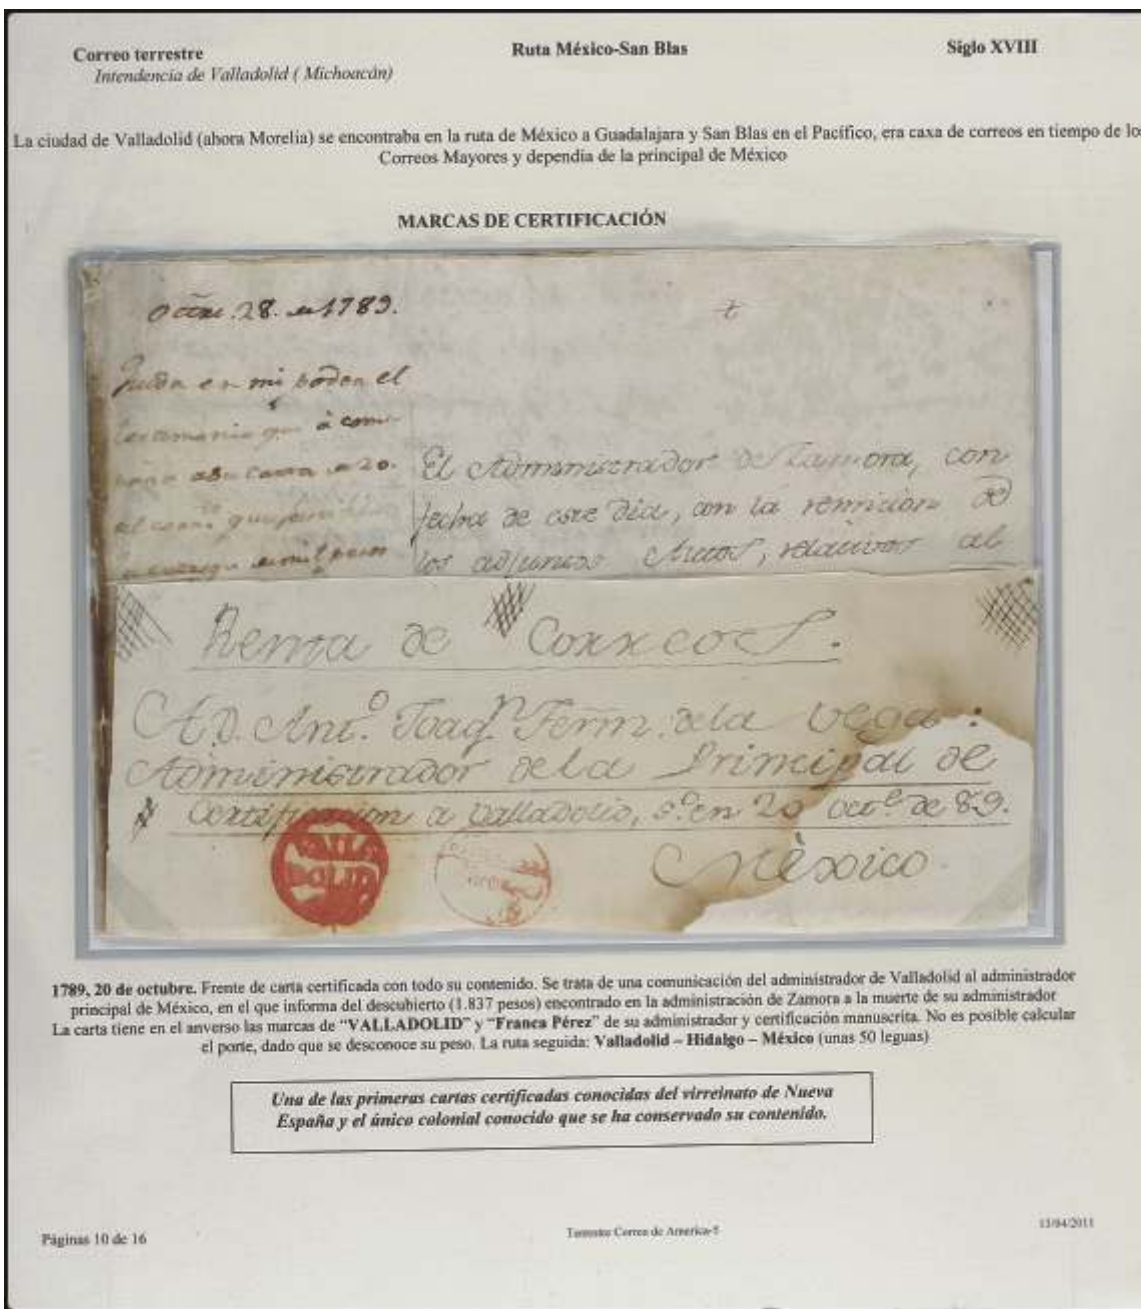 Correo terrestre
Ruta México-San Blas
Siglo XVIII
Intendencia de Valladolid ( Michoacán)
La ciudad de Valladolid (ahora Morelia) se encontraba en la ruta de México a Guadalajara y San Blas en el Pacífico, era caxa de correos en tiempo de lo
Correos Mayores y dependía de la principal de México
MARCAS DE CERTIFICACIÓN
28. 1789.
en mi poder el
que à com
carta 20.
El Administrador de Zamora, con
fecha de este dia, con la remision de
los adjuntos Autos, relativos al
Renta de Correos.
A D. Ant.º Joaqn Fern. de la Vega:
Administrador de la Principal de
Certificacion a Valladolid, s.º en 20 oct.e de 89.
México.
VALLA
DOLID
1789, 20 de octubre. Frente de carta certificada con todo su contenido. Se trata de una comunicación del administrador de Valladolid al administrador
principal de México, en el que informa del descubierto (1.837 pesos) encontrado en la administración de Zamora a la muerte de su administrador
La carta tiene en el anverso las marcas de “VALLADOLID” y “Franca Pérez” de su administrador y certificación manuscrita. No es posible calcular
el porte, dado que se desconoce su peso. La ruta seguida: Valladolid – Hidalgo – México (unas 50 leguas)
Una de las primeras cartas certificadas conocidas del virreinato de Nueva
España y el único colonial conocido que se ha conservado su contenido.
Páginas 10 de 16
Correo de America-5
13/04/2011